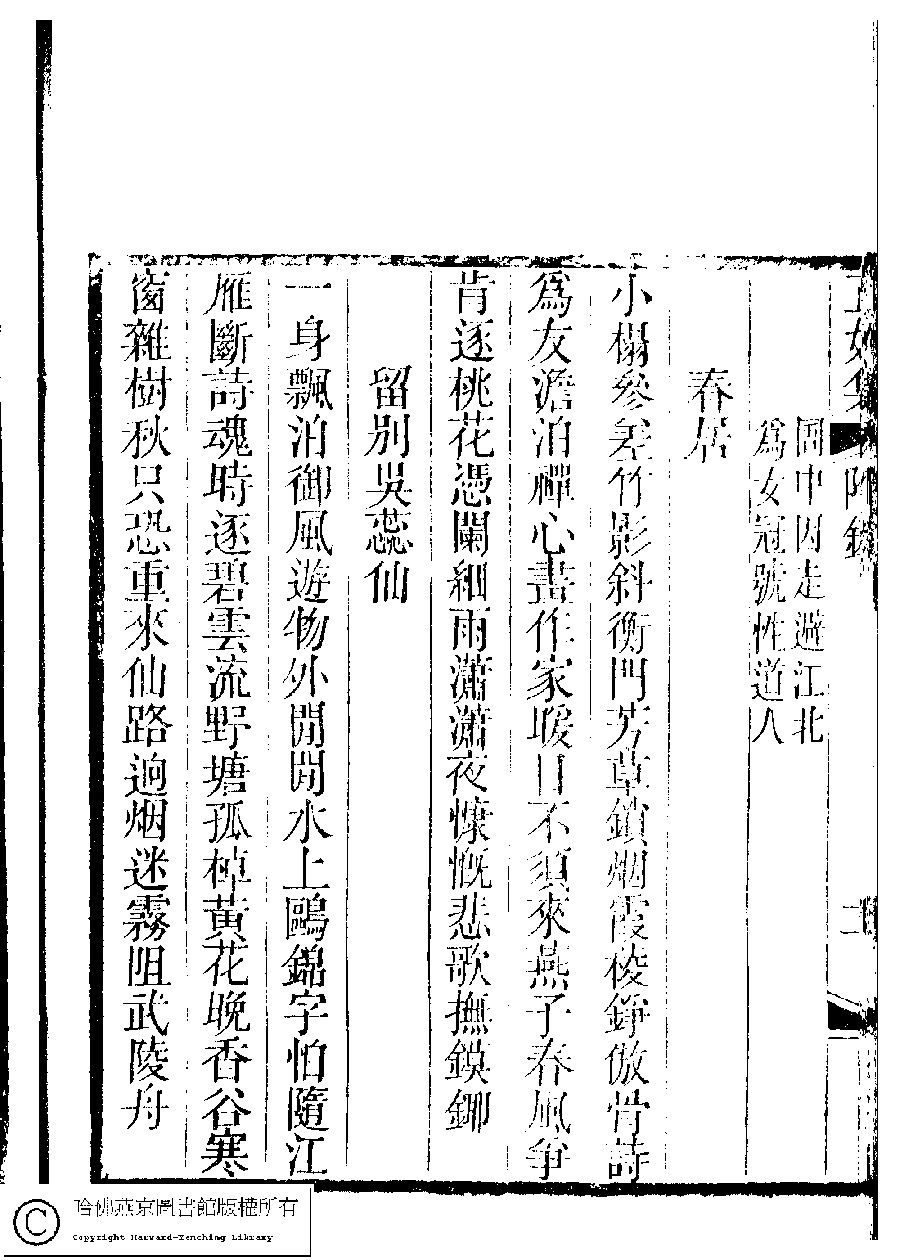 如集 附錄 二
中因走避江北
爲女冠號性道人
春居
小榻參差竹影斜衡門芳草鎖烟霞棱錚傲骨詩
爲友澹泊禪心畫作家暖日不須來燕子春風爭
肯逐桃花憑闌細雨瀟瀟夜慷慨悲歌撫鏌鎁
留別吳蕊仙
一身飄泊御風遊物外閒閒水上鷗錦字怕隨江
雁斷詩魂時逐碧雲流野塘孤棹黃花晚香谷寒
窗雜樹秋只恐重來仙路逈烟迷霧阻武陵舟
哈佛燕京圖書館版權所有
Copyright Harvard-Yenching Library